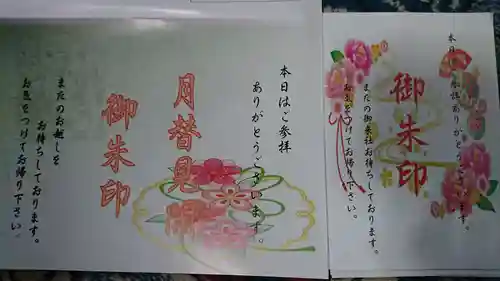 本日はご参拝
ありがとうございます。
月替見開
御朱印
またのお越しを
お待ちしております。
お気をつけてお帰り下さい。
本日
ありがとう
御朱印
またの御来社お待ちしております。
お気をつけてお帰り下さい。